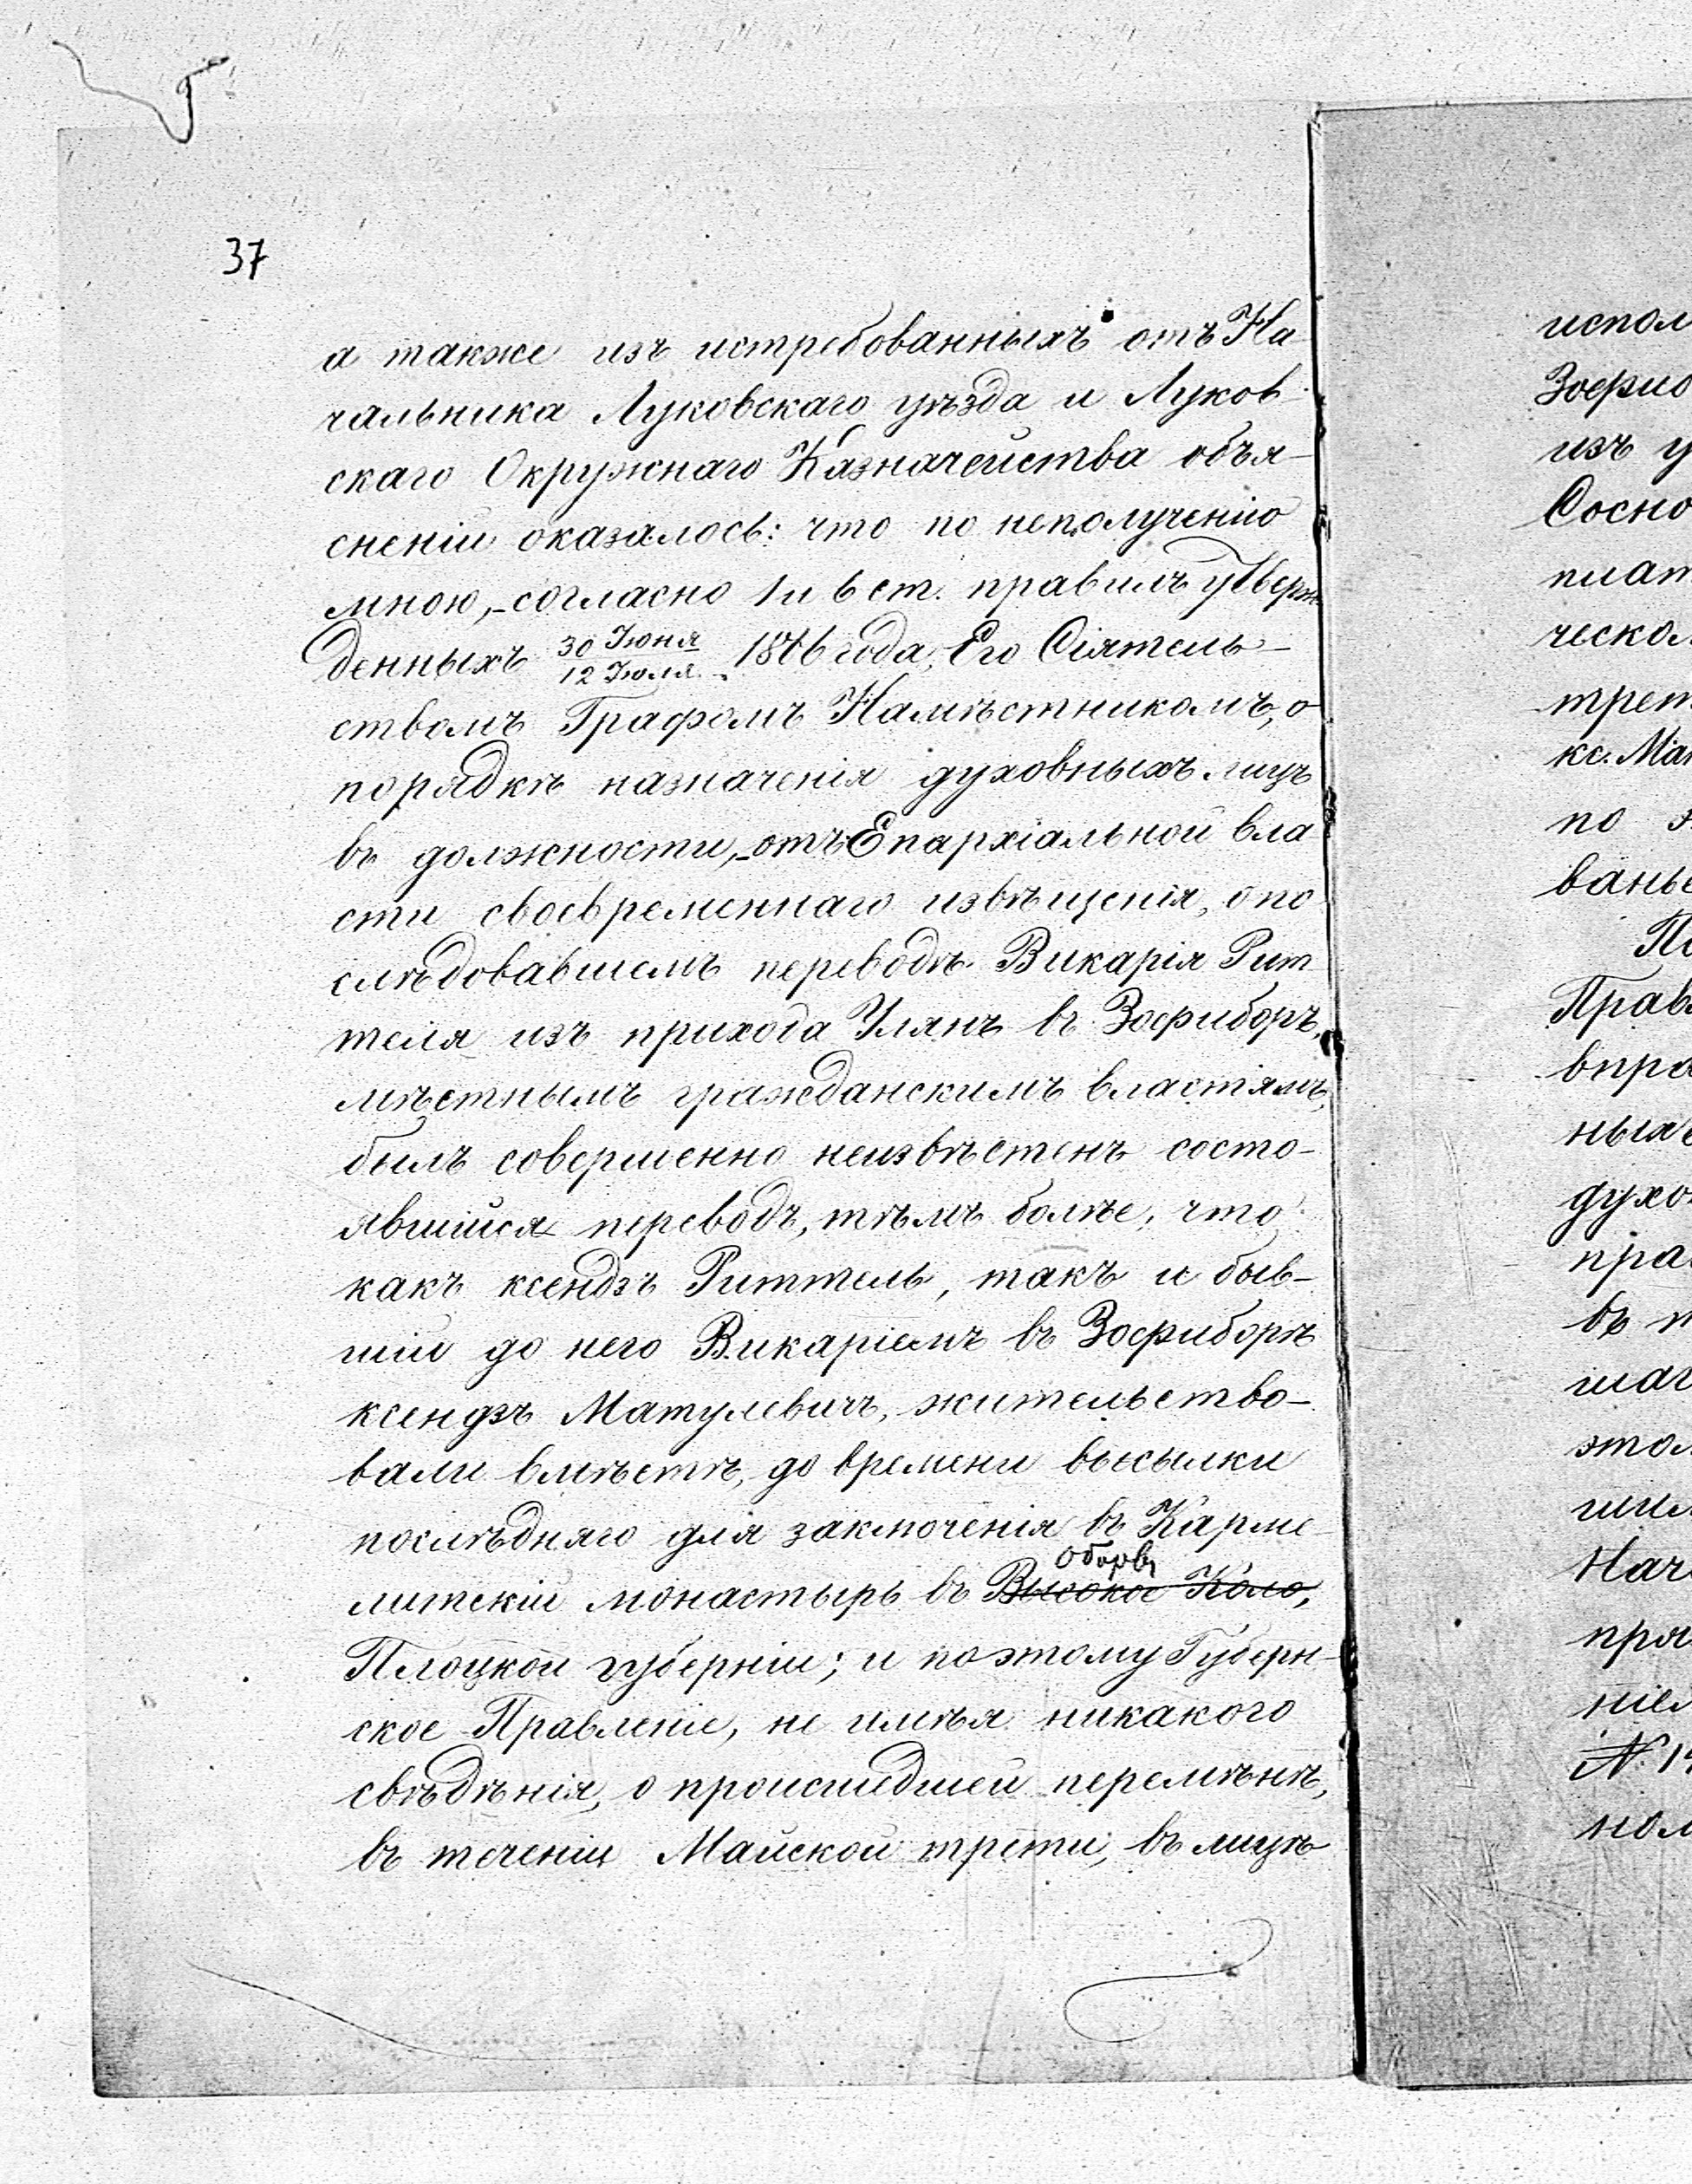 37
а также изъ истребованныхъ отъ На
чальника Луковскаго уѣзда и Луков-
скаго Окружнаго Казначейства объя-
сненій оказалось: что по неполученію
мною,- согласно 1 и 6 ст. правилъ утверж
денныхъ 30 Іюня / 12 Іюля 1866 года, Его Сіятель-
ствомъ Графомъ Намѣстникомъ, о
порядкѣ назначенія духовныхъ лицъ
въ должности,- отъ Епархіальной вла
сти своевременнаго извѣщенія, о по
слѣдовавшемъ переводѣ Викарія Рит
теля изъ прихода Улянъ въ Зофиборъ,
мѣстнымъ гражданскимъ властямъ,
былъ совершенно неизвѣстенъ состо-
явшійся переводъ, тѣмъ болѣе, что
какъ ксендзъ Риттель, такъ и быв-
шій до него Викаріемъ въ Зофиборѣ
ксендзъ Матулевичъ, жительство-
вали вмѣстѣ, до времени высылки
послѣдняго для заключенія въ Карме-
Оборы
литскій монастырь въ Высокое Коло,
Плоцкой губерніи; и поэтому Губерн-
ское Правленіе, не имѣя никакого
свѣдѣнія, о происшедшей перемѣнѣ,
въ теченіи Майской трети, въ лицѣ
испол
Зофибо
изъ у
Сосно
плат
ческом
трет
кс. Мат
по э
ванье
По
Правл
впра
ныхъ
духов
прав
въ т
шаг
этом
шим
Нача
пря
ніем
№ 14
ном